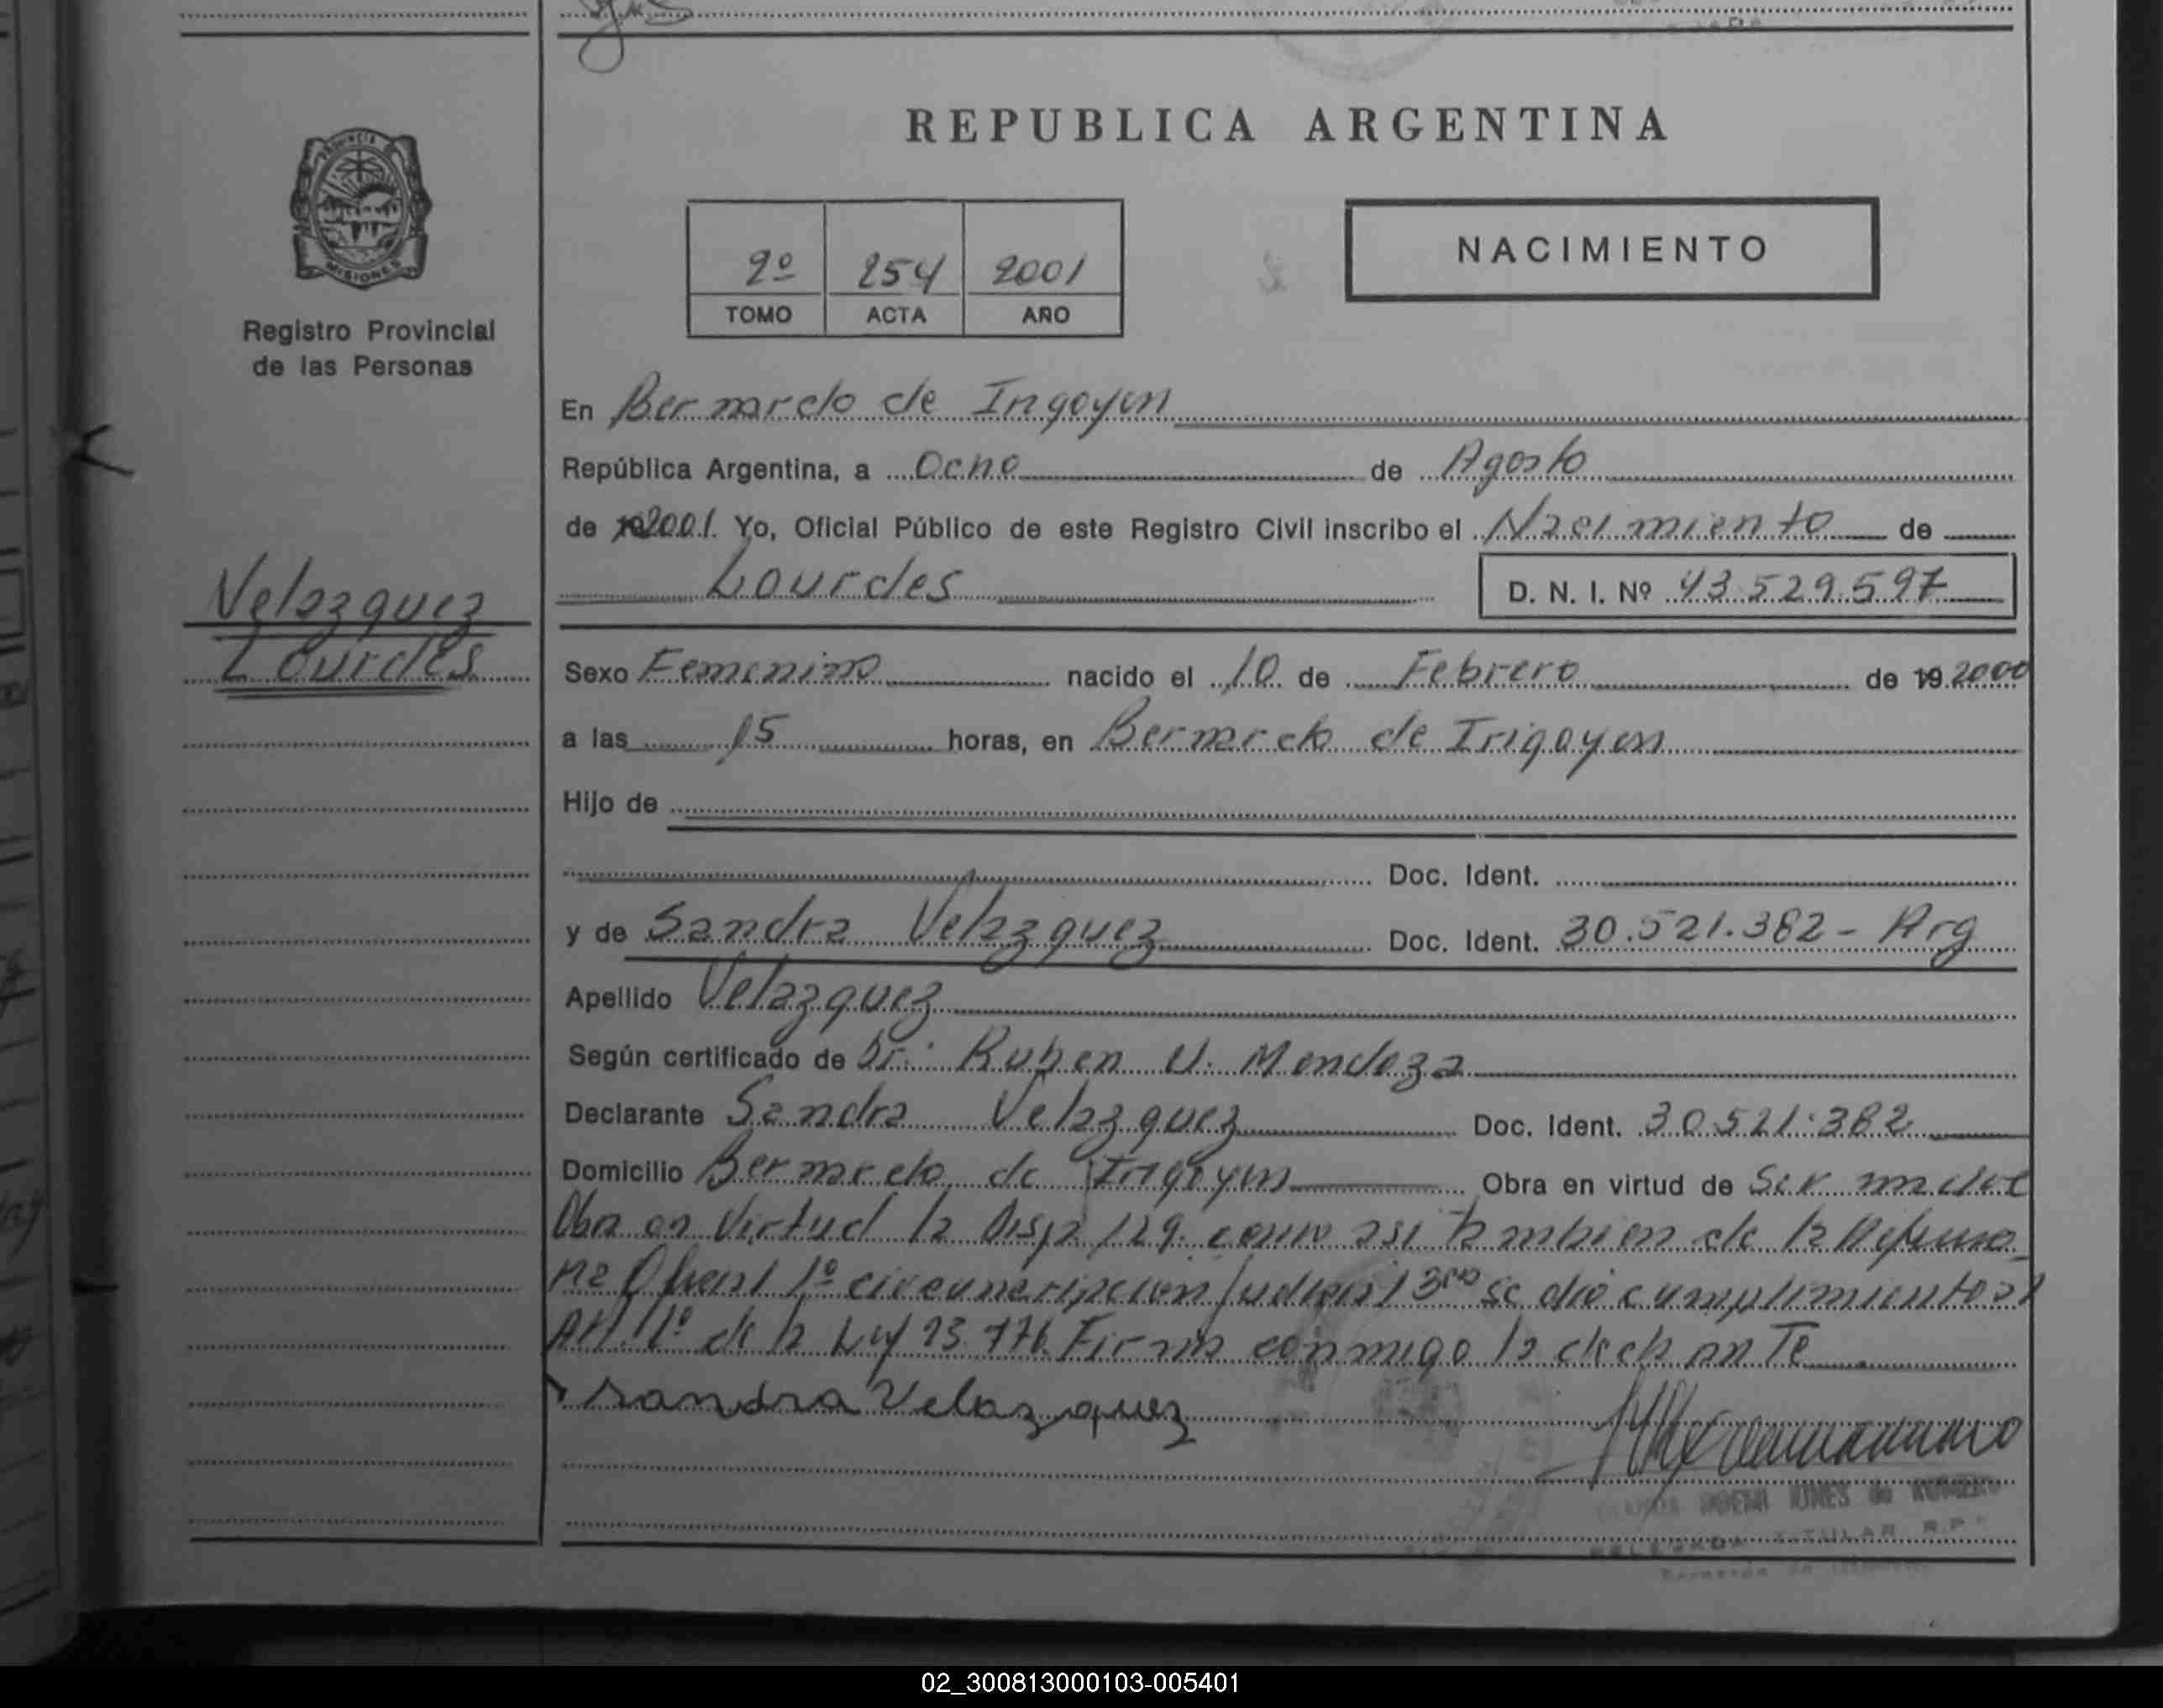 PROVINCIA
MISIONES
Registro Provincial
de las Personas
Velazquez
Lourdes
REPUBLICA ARGENTINA
2º 254 2001
TOMO ACTA AÑO
NACIMIENTO
En Bernardo de Irigoyen
República Argentina, a Ocho de Agosto
de 192001. Yo, Oficial Público de este Registro Civil inscribo el Nacimiento de
Lourdes D. N. I. Nº 43.529.597
Sexo Femenino nacido el 10 de Febrero de 19 2000
a las 15 horas, en Bernardo de Irigoyen
Hijo de
Doc. Ident.
y de Sandra Velazquez Doc. Ident. 30.521.382 - Arg
Apellido Velazquez
Según certificado de Dr: Ruben U. Mendoza
Declarante Sandra Velazquez Doc. Ident. 30.521.382
Domicilio Bernardo de Irigoyen Obra en virtud de Ser madre
Obra en Virtud la Disp. 129. como asi tambien de la
1º circunscripcion Judicial 3ra se dio cumplimiento al
Art. 1º de la Ley 23.776. Firma conmigo la declarante
Sandra Velazquez
de ROMERO
TITULAR R.P.
Bernardo de Irigoyen
02_300813000103-005401